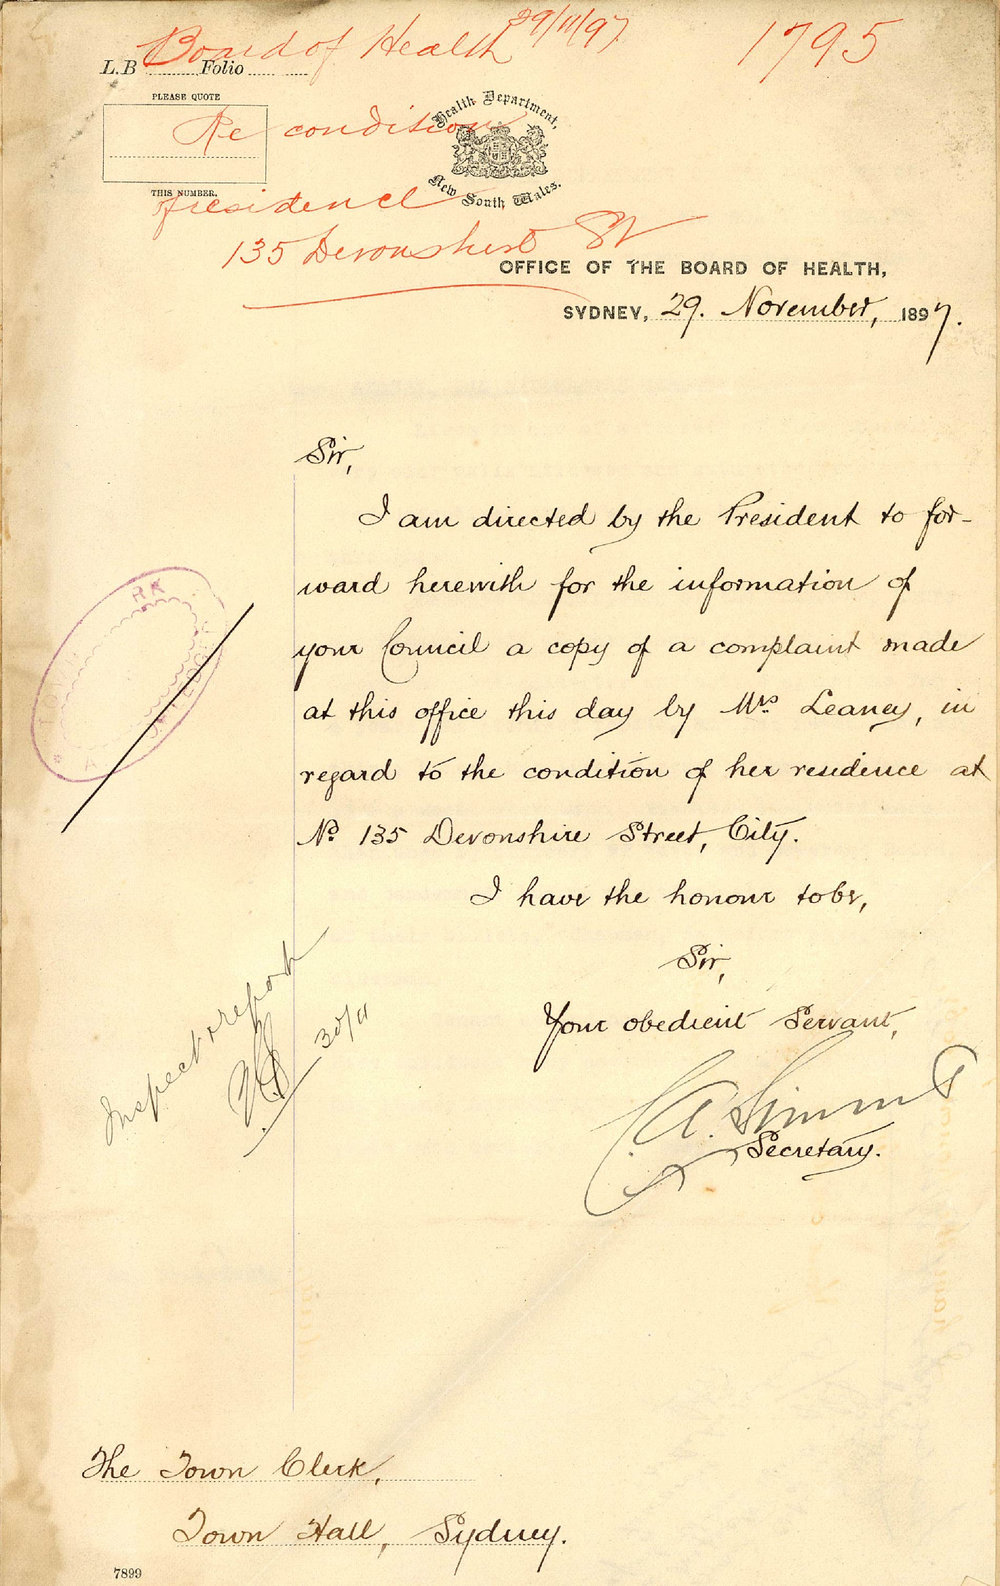 Board of Health 29/11/97
1795
L.B ......... Folio .........
PLEASE QUOTE
THIS NUMBER.
Re condition
of residence
135 Devonshire St
Health Department,
New South Wales.
OFFICE OF THE BOARD OF HEALTH,
SYDNEY, 29. November, 1897.
Sir,
I am directed by the President to for-
ward herewith for the information of
your Council a copy of a complaint made
at this office this day by Mrs Leaney, in
regard to the condition of her residence at
No 135 Devonshire Street, City.
I have the honour to be,
Sir,
Your obedient Servant,
Secretary.
Inspect & report
30/11
The Town Clerk,
Town Hall, Sydney.
7899